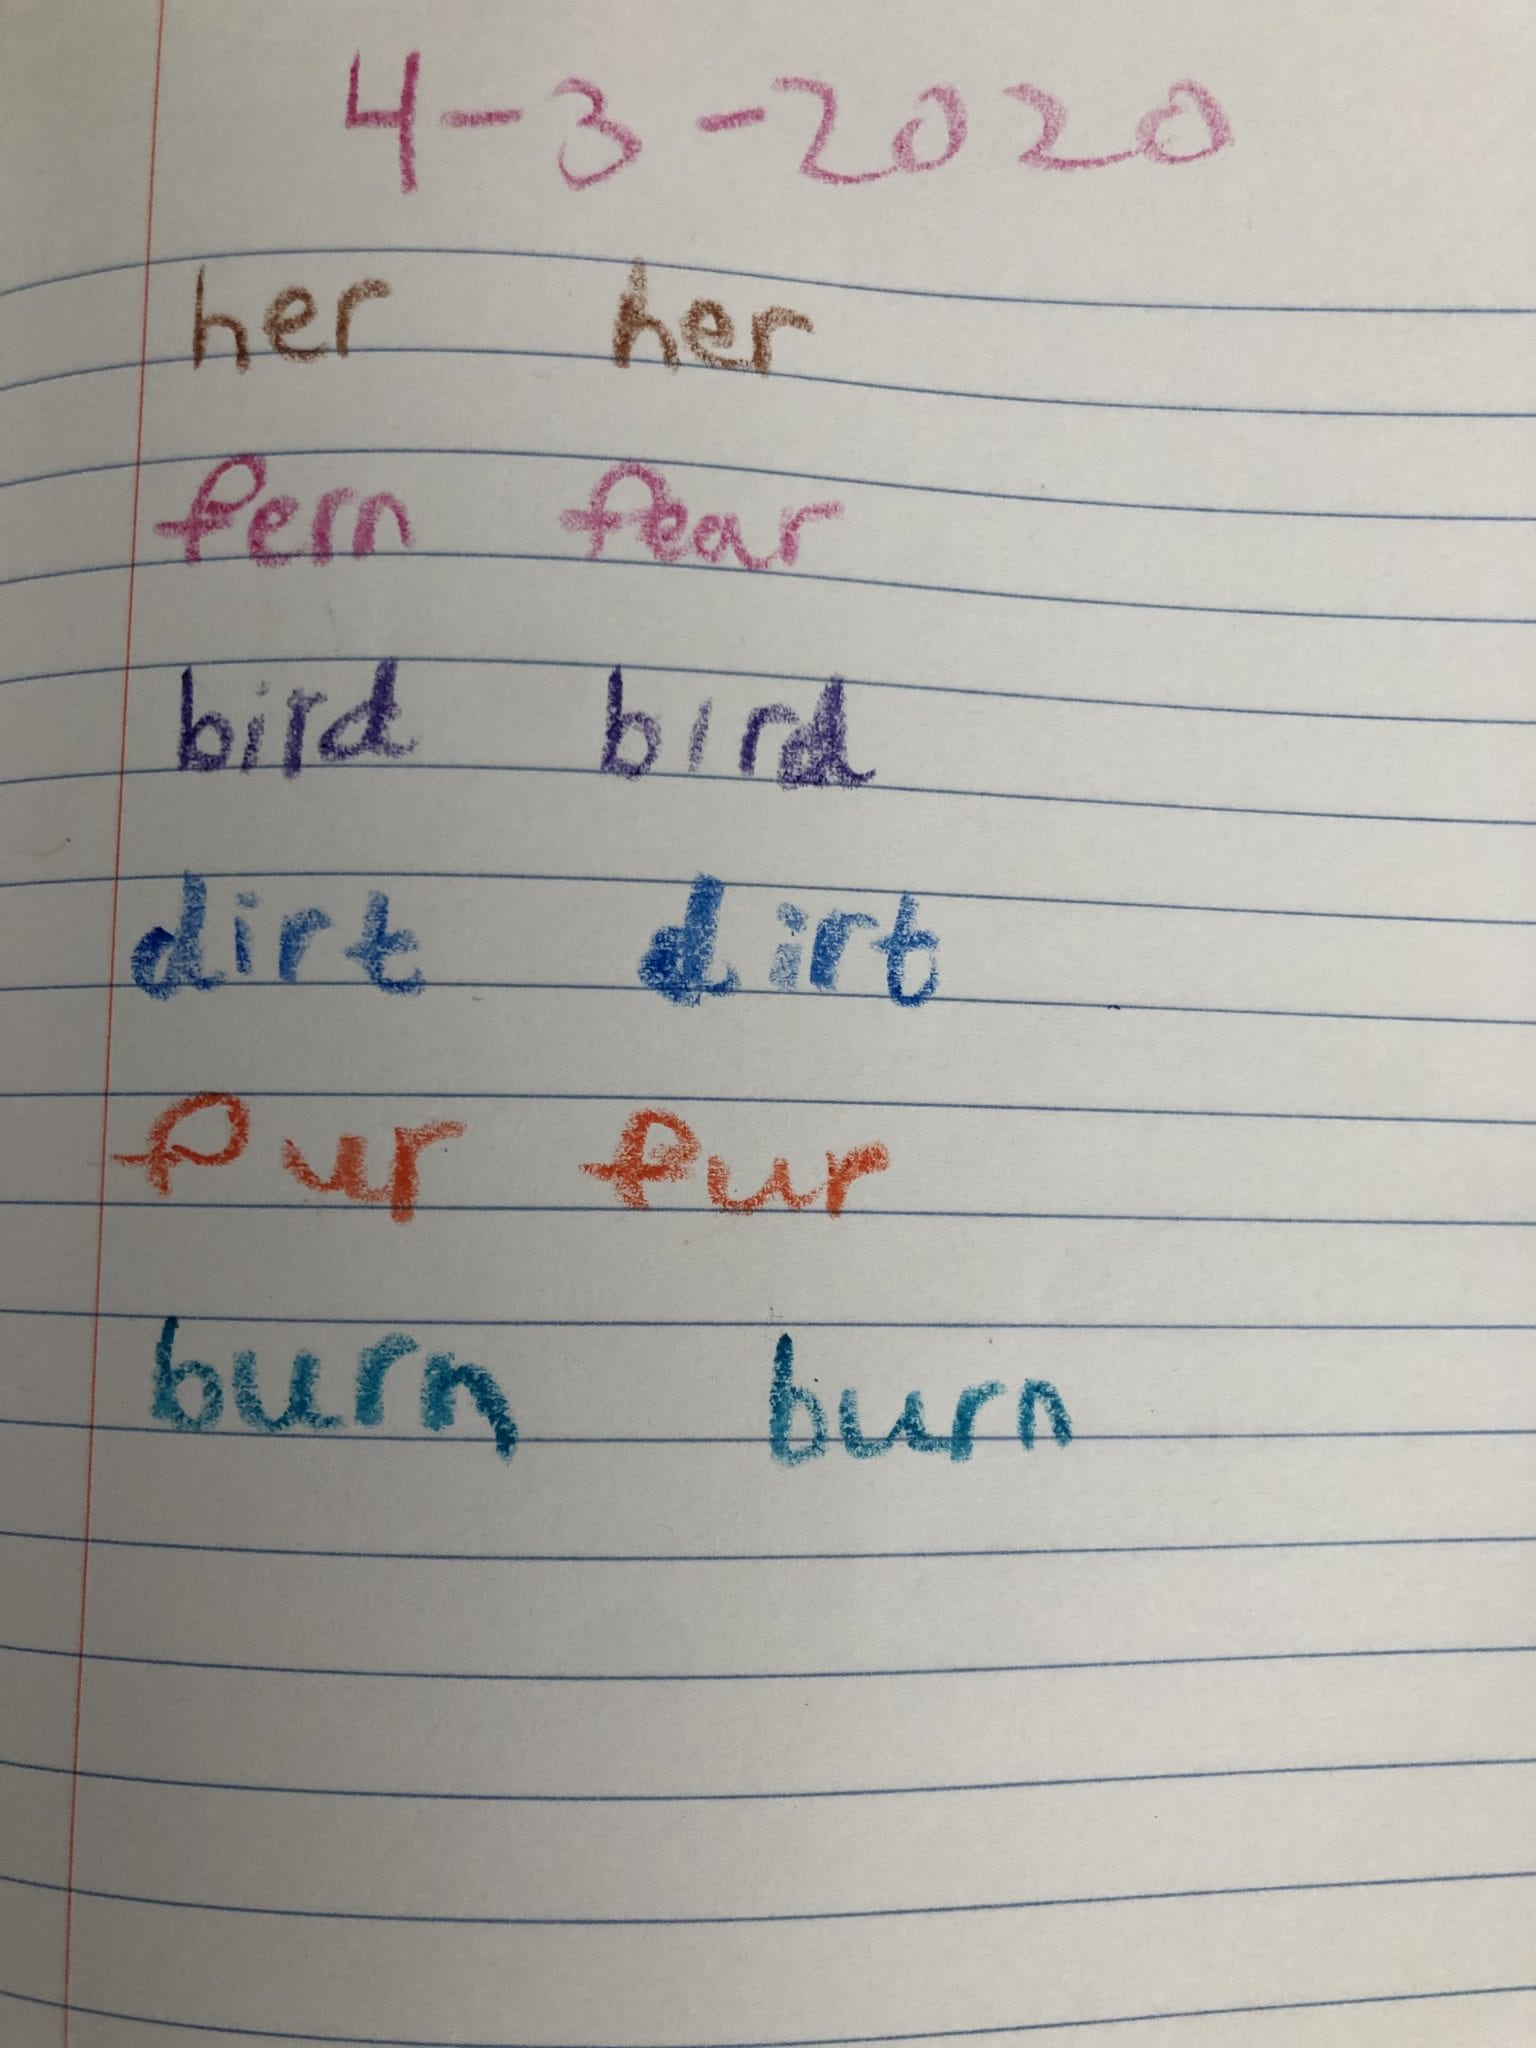 4-3-2020
her her
fern fear
bird bird
dirt dirt
fur fur
burn burn